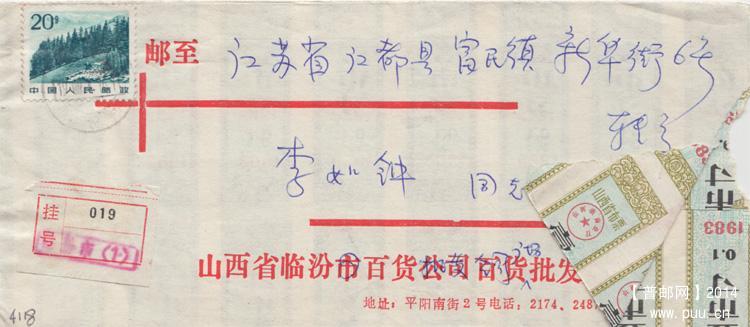 20分
中国人民邮政
邮至 江苏省江都县富民镇新华街6号
李如钟 同志
挂号 019
(1)
山西省临汾市百货公司百货批发
地址:平阳南街2号电话:2174、248
山西省布票
壹市
1983
0.1
4118
【普邮网】2014
www.puu.cn